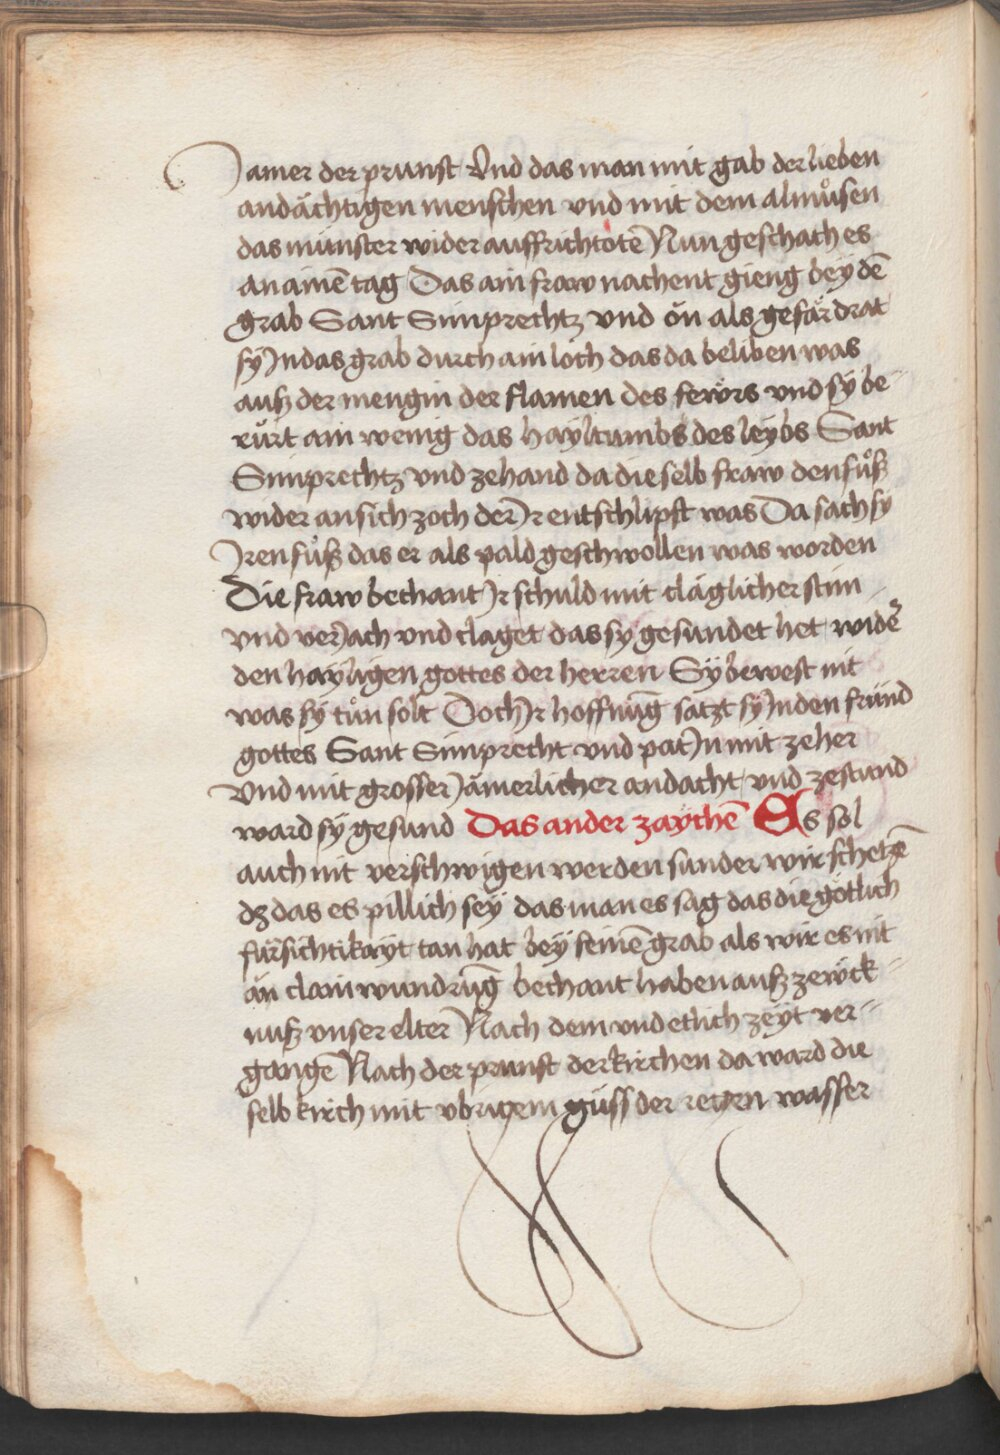 Jamer der prunst Vnd das man mit gab der lieben
andächtigen menschen vnd mit dem almůsen
das münster wider auffrichtotē Nun geschach es
an ainē tag Das ain fraw nachent gieng bey dē
grab Sant Simprechtz vnd ön als gefärd rat
sy Jn das grab durch ain loch das da beliben was
auß der mengin der flamen des fewrs vnd sy be-
rürt ain wenig das hayltumbs des leybs Sant
Simprechtz vnd zehand da die selb fraw den fůß
wider an sich zoch der Jr entschlipft was Da sach sy
Jren fůß das er als pald geschwollen was worden
Die fraw bechant Jr schuld mit cläglicher stim
vnd verJach vnd claget das sy gesundet het widē
den hayligen gottes der herren Sy bewest nit
was sy tůn solt Doch Jr hoffnūg satzt sy Jn den fründ
gottes Sant Simprecht vnd pat Jn mit zeher
Vnd mit grosser Jämerlicher andacht vnd zestund
ward sy gesund Das ander zaychē Es sol
auch nit verschwigen werden sunder wir schetzē
dz das es pillich sey das man es sag das die götlich
fürsichtikayt tan hat bey seinē grab als wir es nit
än clain wundrūg bechant haben auß zewck-
nuß vnser elter Nach dem vnd etlich zeyt ver-
gangē Nach der prunst der kirchen da ward die
selb kirch mit vbrigem güss der regen wasser